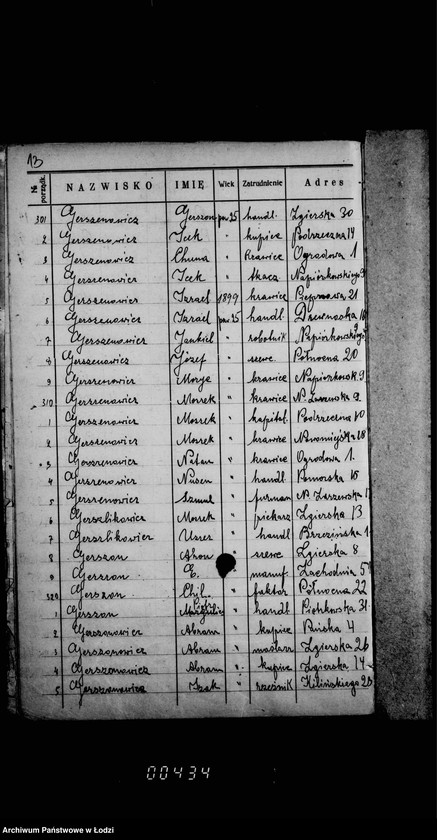 13
№ porządk. NAZWISKO IMIĘ Wiek Zatrudnienie Adres
301 Gerszenowicz Gerszon pow.25 handl. Zgierska 30
2 Gerszenowicz Icek " kupiec Podrzeczna 14
3 Gerszenowicz Chuna " Krawiec Ogrodowa 1
4 Gerszenowicz Icek " tkacz Napiórkowskiego
5 Gerszenowicz Izrael 1899 krawiec 21
6 Gerszenowicz Izrael pow.25 handl. Drewnowska
7 Gerszenowicz Jankiel " robotnik Napiórkowskiego
8 Gerszenowicz Józef " szewc Północna 20
9 Gerszenowicz Moryc " krawiec Napiórkowsk. 9
310 Gerszenowicz Moszek " krawiec 9
1 Gerszenowicz Moszek " kapital. Podrzeczna 10
2 Gerszenowicz Moszek " krawiec Nowomiejska 28
3 Gerszenowicz Natan " krawiec Ogrodowa 1.
4 Gerszenowicz Nusen " handl. Pomorska
5 Gerszenowicz Szmul " furman N. Zarzewska
6 Gerszlikowicz Moszek " piekarz Zgierska 13
7 Gerszlikowicz Uszer " handl Brzezińska
8 Gerszon Aron szewc Zgierska 8
9 Gerszon E. manuf. Zachodnia
320 Gerszon Chil " faktor Północna 22
1 Gerszon " handl. Piotrkowska 31
2 Gerszonowicz Abram " kupiec 4
3 Gerszonowicz Abram " Zgierska 26
4 Gerszonowicz Abram " kupiec Zgierska 14
5 Gerszonowicz Icak " rzeźnik Kilińskiego
00434
Archiwum Państwowe w Łodzi